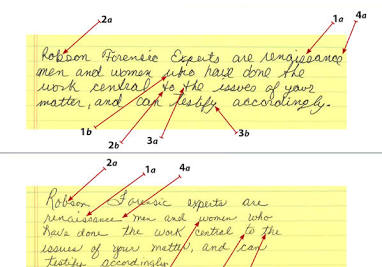 2a 1a 4a
Robson Forensic Experts are renaissance
men and women who have done the
work central to the issues of your
matter, and can testify accordingly.
1b 2b 3a 3b
2a 1a 4a
Robson Forensic experts are
renaissance men and women who
have done the work central to the
issues of your matter, and can
testify accordingly